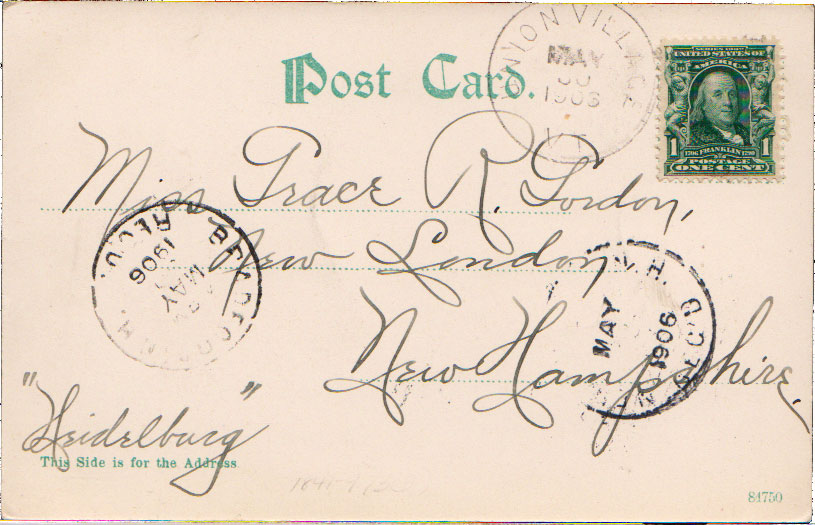 Post Card.
UNION VILLAGE
MAY
30
1906
VT.
SERIES 1902
UNITED STATES OF
AMERICA
1 FRANKLIN 1
POSTAGE
ONE CENT
Miss Grace R. Gordon,
New London,
New Hampshire.
REC'D.
1906
MAY
N.H.
MAY
1906
REC'D
"Heidelburg"
This Side is for the Address
84750